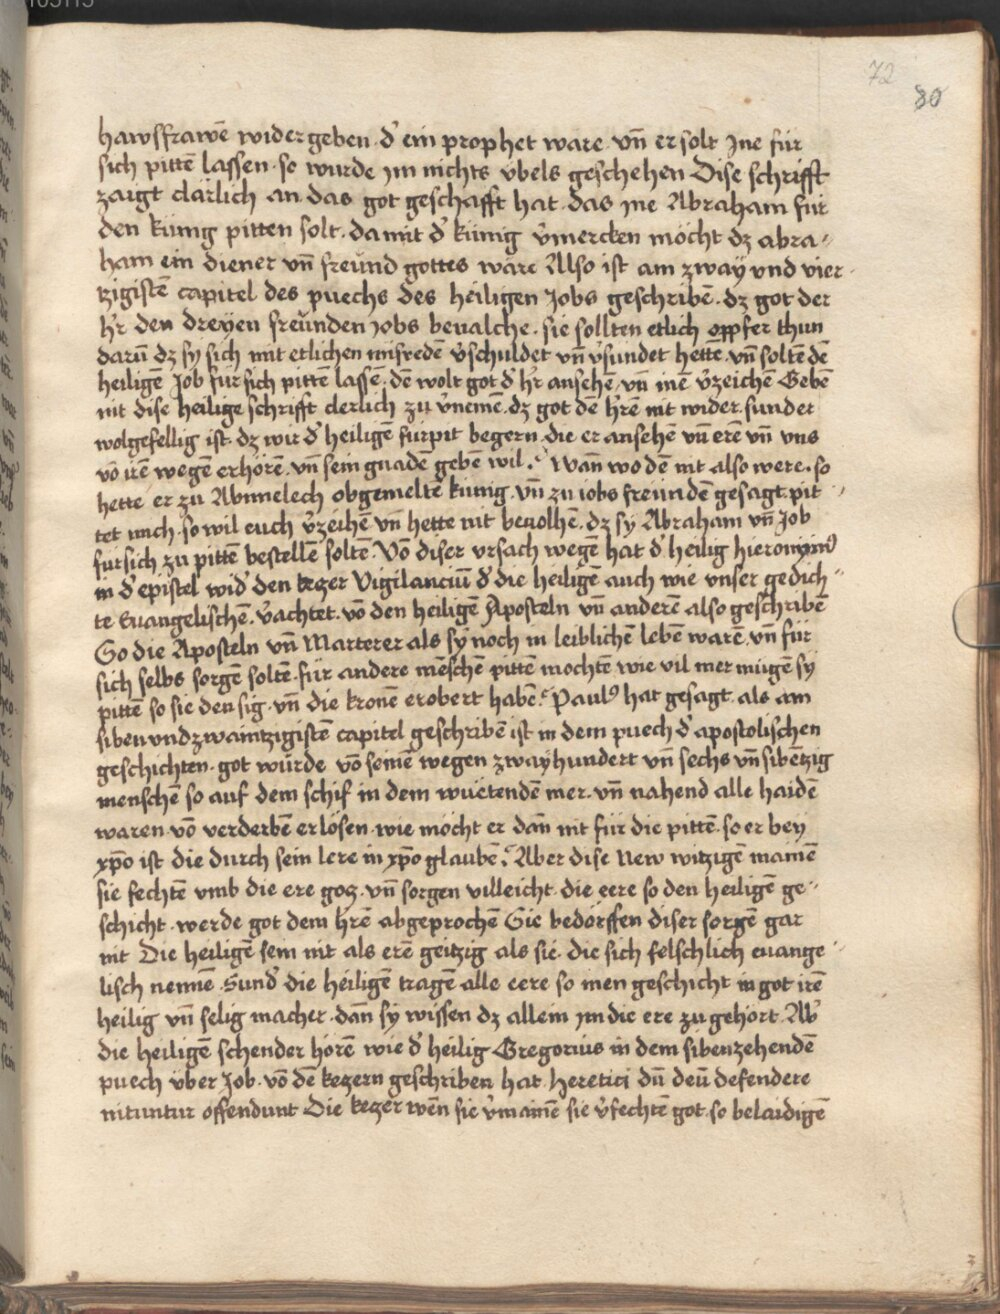 72
80
hawsfrawē wider geben. d' ein prophet ware vn̄ er solt jne für
sich pittē lassen. so wurde jm nichts v̈bels geschehen Dise schrifft
zaigt clärlich an das got geschafft hat. das jne Abraham für
den künig pitten solt. damit d' künig v'mercken möcht dz abra-
ham ein diener vn̄ freünd gottes wäre Also ist am zway vnd vier-
tzigistē capitel des puechs des heiligen Jobs geschribē. dz got der
h'r den dreyen freünden jobs beualche. sie sollten etlich oppfer thun
darū dz sy sich mit etlichen misredē v'schuldet vn̄ v'sundet hettē. vn̄ soltē dē
heiligē Job fur sich pittē lassē. dē wolt got d' h'r ansehē. vn̄ inē v'zeichē Gebē
nit dise heilige schrifft clerlich zu v'nemē. dz got dē h'rē nit wider. sunder
wolgefellig ist. dz wir d' heiligē fürpit begern. die er ansehē vn̄ erē vn̄ vns
vō irē wegē erhörē. vn̄ sein gnadē gebē wil. Wan̄ wo dē nit also were. so
hette er zu Abimelech obgemeltē künig. vn̄ zu iobs freündē gesagt. pit-
tet mich. so wil euch v'zeihē vn̄ hette nit beuolhē. dz sy Abraham vn̄ Job
fur sich zu pittē bestellē soltē. Vō diser vrsach wegē hat d' heilig hieronymꝰ
in d' epistel wid' den kezer Vigilanciū d' die heiligē auch wie vnser gedich-
te Euangelischē. v'achtet. vō den heiligē Aposteln vn̄ anderē also geschribē
So die Aposteln vn̄ Marterer als sy noch in leiblichē lebē warē. vn̄ für
sich selbs sorgē soltē. für andere mēschē pittē mochtē wie vil mer mügē sy
pittē so sie den sig. vn̄ die kronē erobert habē. Paulꝰ hat gesagt. als am
siben vnd zwaintzigistē capitel geschribē ist in dem puech d' apostolischen
geschichten. got würde vō seinē wegen zwayhundert vn̄ sechs vn̄ sibētzig
menschē so auf dem schif in dem wuetendē mer. vn̄ nahend alle haidē
waren. vō verderbē erlösen. wie möcht er dan̄ nit für die pittē. so er bey
xp̄o ist die durch sein lere in xp̄o glaubē. Aber dise New witzigē mainē
sie fechtē vmb die ere goz. vn̄ sorgen villeicht. die eere so den heiligē ge-
schicht. werde got dem h'rē abgeprochē Sie bedörffen diser sorgē gar
nit Die heiligē sein nit als erē geitzig als sie. die sich felschlich euange-
lisch nennē. Sund' die heiligē tragē alle eere so inen geschicht in got irē
heilig vn̄ selig macher. dan̄ sy wissen dz allein jm die ere zu gehört. Ab'
die heiligē schender hörē wie d' heilig Gregorius in dem sibenzehendē
puech v̈ber Job. vō dē kezern geschriben hat. heretici dū deū defendere
nituntur offendunt Die kezer wēn sie v'mainē sie v'fechtē got. so belaidigē